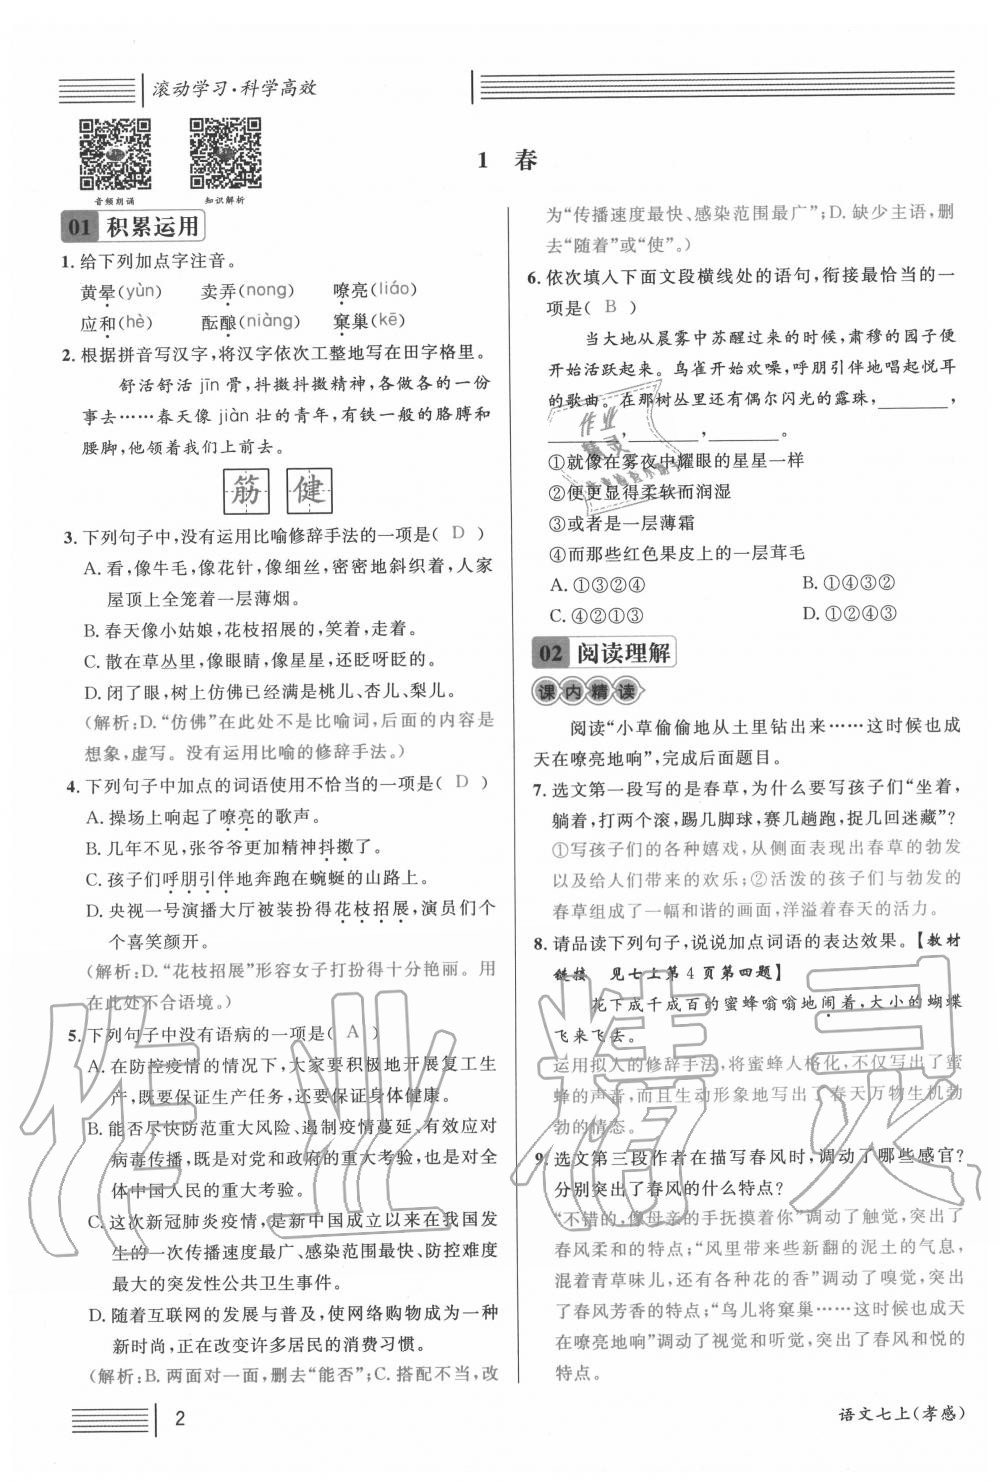 滚动学习·科学高效
音频朗诵
知识解析
1 春
01 积累运用
1. 给下列加点字注音。
黄晕(yùn) 卖弄(nong) 嘹亮(liáo)
应和(hè) 酝酿(niàng) 窠巢(kē)
2. 根据拼音写汉字，将汉字依次工整地写在田字格里。
舒活舒活 jīn 骨，抖擞抖擞精神，各做各的一份
事去……春天像 jiàn 壮的青年，有铁一般的胳膊和
腰脚，他领着我们上前去。
筋 健
3. 下列句子中，没有运用比喻修辞手法的一项是( D )
A. 看，像牛毛，像花针，像细丝，密密地斜织着，人家
屋顶上全笼着一层薄烟。
B. 春天像小姑娘，花枝招展的，笑着，走着。
C. 散在草丛里，像眼睛，像星星，还眨呀眨的。
D. 闭了眼，树上仿佛已经满是桃儿、杏儿、梨儿。
(解析：D.“仿佛”在此处不是比喻词，后面的内容是
想象，虚写。没有运用比喻的修辞手法。)
4. 下列句子中加点的词语使用不恰当的一项是( D )
A. 操场上响起了嘹亮的歌声。
B. 几年不见，张爷爷更加精神抖擞了。
C. 孩子们呼朋引伴地奔跑在蜿蜒的山路上。
D. 央视一号演播大厅被装扮得花枝招展，演员们个
个喜笑颜开。
(解析：D.“花枝招展”形容女子打扮得十分艳丽。用
在此处不合语境。)
5. 下列句子中没有语病的一项是( A )
A. 在防控疫情的情况下，大家要积极地开展复工生
产，既要保证生产任务，还要保证身体健康。
B. 能否尽快防范重大风险、遏制疫情蔓延、有效应对
病毒传播，既是对党和政府的重大考验，也是对全
体中国人民的重大考验。
C. 这次新冠肺炎疫情，是新中国成立以来在我国发
生的一次传播速度最广、感染范围最快、防控难度
最大的突发性公共卫生事件。
D. 随着互联网的发展与普及，使网络购物成为一种
新时尚，正在改变许多居民的消费习惯。
(解析：B. 两面对一面，删去“能否”；C. 搭配不当，改
为“传播速度最快、感染范围最广”；D. 缺少主语，删
去“随着”或“使”。)
6. 依次填入下面文段横线处的语句，衔接最恰当的一
项是( B )
当大地从晨雾中苏醒过来的时候，肃穆的园子便
开始活跃起来。鸟雀开始欢噪，呼朋引伴地唱起悦耳
的歌曲。在那树丛里还有偶尔闪光的露珠，________，
________，________，________。
①就像在雾夜中耀眼的星星一样
②便更显得柔软而润湿
③或者是一层薄霜
④而那些红色果皮上的一层茸毛
A. ①③②④ B. ①④③②
C. ④②①③ D. ①②④③
02 阅读理解
课内精读
阅读“小草偷偷地从土里钻出来……这时候也成
天在嘹亮地响”，完成后面题目。
7. 选文第一段写的是春草，为什么要写孩子们“坐着，
躺着，打两个滚，踢几脚球，赛几趟跑，捉几回迷藏”？
①写孩子们的各种嬉戏，从侧面表现出春草的勃发
以及给人们带来的欢乐；②活泼的孩子们与勃发的
春草组成了一幅和谐的画面，洋溢着春天的活力。
8. 请品读下列句子，说说加点词语的表达效果。【教材
链接 见七上第4页第四题】
花下成千成百的蜜蜂嗡嗡地闹着，大小的蝴蝶
飞来飞去。
运用拟人的修辞手法，将蜜蜂人格化，不仅写出了蜜
蜂的声音，而且生动形象地写出了春天万物生机勃
勃的情态。
9. 选文第三段作者在描写春风时，调动了哪些感官？
分别突出了春风的什么特点？
“不错的，像母亲的手抚摸着你”调动了触觉，突出了
春风柔和的特点；“风里带来些新翻的泥土的气息，
混着青草味儿，还有各种花的香”调动了嗅觉，突出
了春风芳香的特点；“鸟儿将窠巢……这时候也成天
在嘹亮地响”调动了视觉和听觉，突出了春风和悦的
特点。
作业精灵
2
语文七上(孝感)